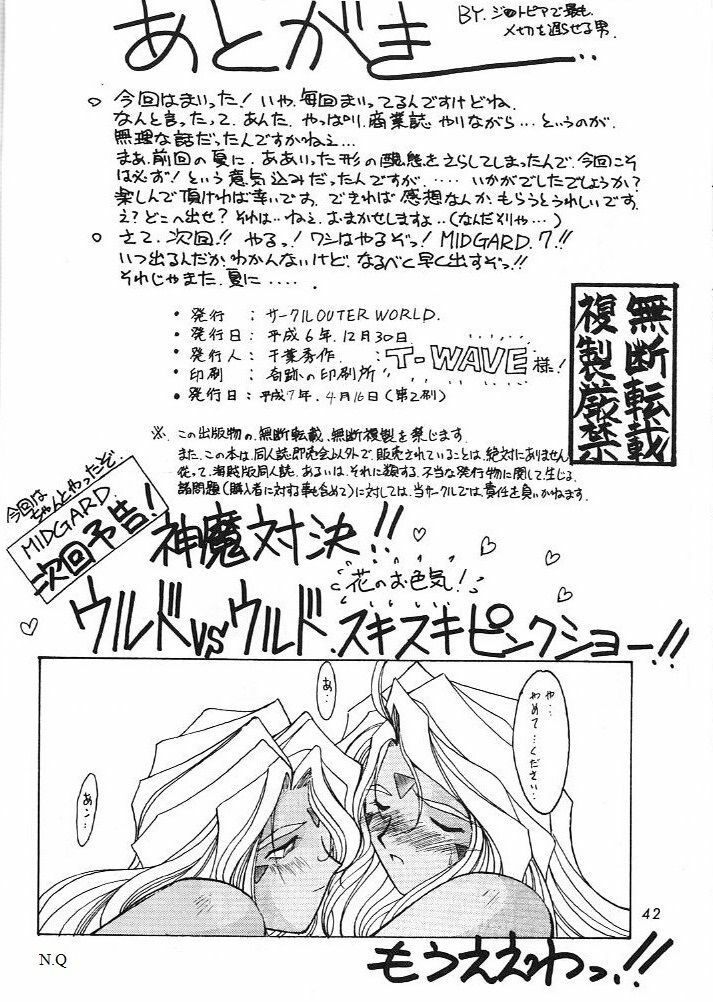 あとがき…
BY. ジオトピアで最も
〆切を遅らせる男.
○ 今回はまいった! いや、毎回まいってるんですけどね.
なんと言ったって、あんた、やっぱり、商業誌やりながら…というのが、
無理な話だったんですかねえ…
まあ、前回の夏に、ああいった形の醜態をさらしてしまったんで、今回こそ
は必ず! という意気込みだったんですが、…… いかがでしたでしょうか?
楽しんで頂ければ幸いです. できれば感想なんか、もらうとうれしいです.
え? どこへ出せ? それは…ねえ、おまかせしますよ…(なんだそりゃ…)
○ さて、次回!! やるっ! ワシはやるぞっ! MIDGARD.7!!
いつ出るんだか、わかんないけど、なるべく早く出すぞっ!!
それじゃまた、夏に‥‥.
・発行 : サークルOUTER WORLD.
・発行日 : 平成6年.12月30日.
・発行人 : 千葉秀作.
・印刷 : 奇跡の印刷所 : T-WAVE様!
・発行日 : 平成7年.4月16日(第2刷)
無断転載
複製厳禁
※. この出版物の、無断転載、無断複製を禁じます.
また、この本は、同人誌即売会以外で、販売されていることは、絶対にありません
従って、海賊版同人誌、あるいは、それに類する、不当な発行物に関して生じる、
諸問題(購入者に対する事も含めて)に対しては、当サークルでは、責任を負いかねます.
今回は
ちゃんとやったぞ.
MIDGARD
次回予告!
神魔対決!!
花のお色気!
ウルドvsウルド.スキスキピンクショー!!
や…
やめて…ください…
あ…
あン…
42
もうええわっ!!
N.Q